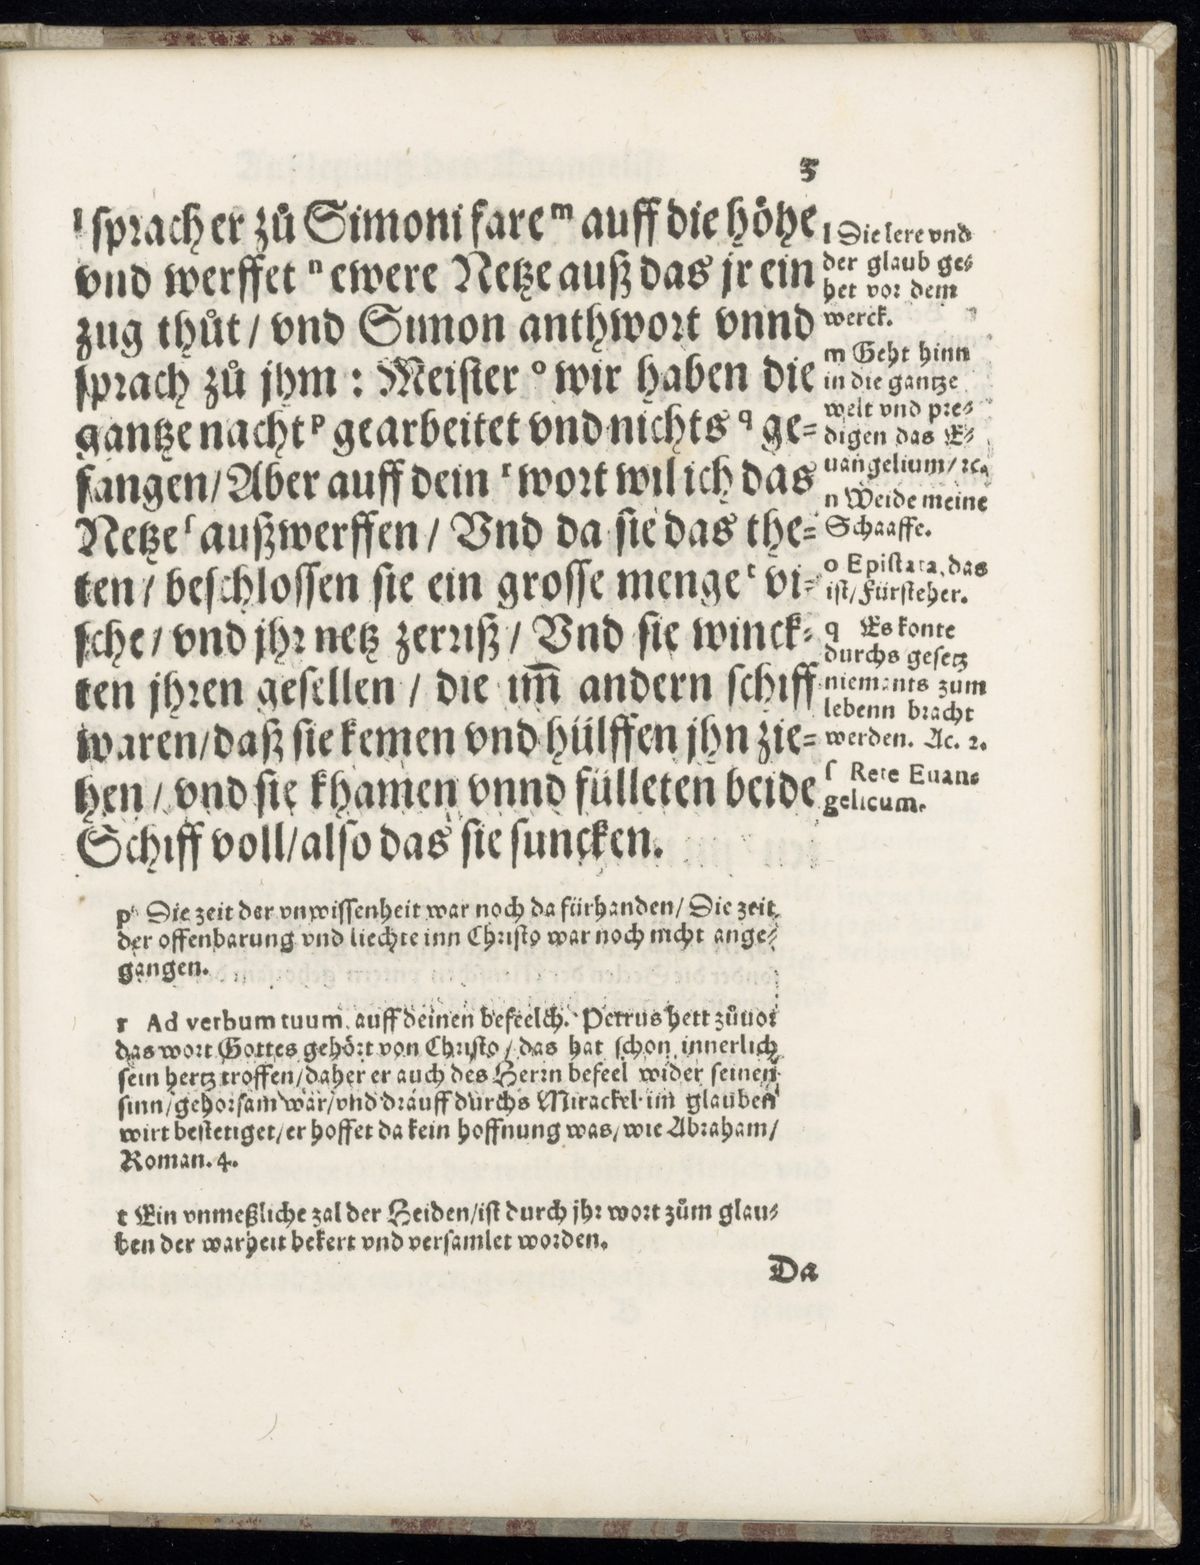 5
ˡ sprach er zů Simoni fare ᵐ auff die höhe
vnd werffet ⁿ ewere Netze auß das jr ein
zug thůt / vnd Simon anthwort vnnd
sprach zů jhm : Meister ᵒ wir haben die
gantze nacht ᵖ gearbeitet vnd nichts q ge⸗
fangen / Aber auff dein ʳ wort wil ich das
Netze ˢ außwerffen / Vnd da sie das the⸗
ten / beschlossen sie ein grosse menge ᵗ vi⸗
sche / vnd jhr netz zerriß / Vnd sie winck⸗
ten jhren gesellen / die im̄ andern schiff
waren / daß sie kemen vnd hülffen jhn zie⸗
hen / vnd sie khamen vnnd fülleten beide
Schiff voll / also das sie suncken.
l Die lere vnd
der glaub ge⸗
het vor dem
werck.
m Geht hinn
in die gantze
welt vnd pre⸗
digen das E⸗
uangelium / ꝛc.
n Weide meine
Schaaffe.
o Epistata, das
ist / Fürsteher.
q Es konte
durchs gesetz
niemants zum
lebenn bracht
werden. Ac. 2.
ſ Rete Euan⸗
gelicum.
p Die zeit der vnwissenheit war noch da fürhanden / Die zeit
der offenbarung vnd liechte inn Christo war noch nicht ange⸗
gangen.
r Ad verbum tuum. auff deinen befeelch. Petrus hett zůuor
das wort Gottes gehört von Christo / das hat schon innerlich
sein hertz troffen / daher er auch des Herrn befeel wider seinen
sinn / gehorsam war / vnd drauff durchs Mirackel im glauben
wirt bestetiget / er hoffet da kein hoffnung was / wie Abraham /
Roman. 4.
t Ein vnmeßliche zal der Heiden / ist durch jhr wort zům glau⸗
ben der warheit bekert vnd versamlet worden.
Da